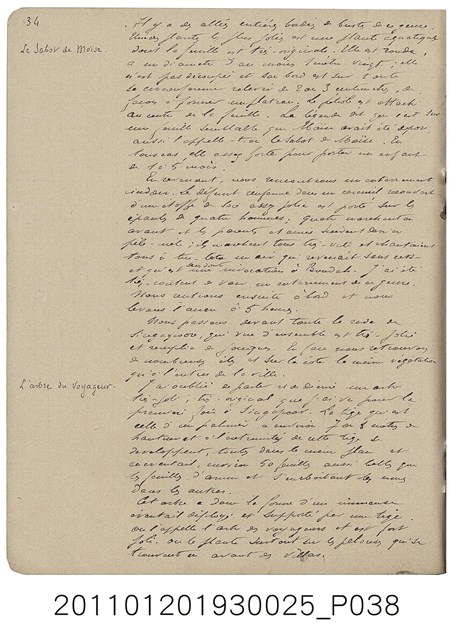 34
Il y a des allées entières bordées de buste de ce genre.
Une des plantes les plus jolies est une plante aquatique
Le Sabot de Moïse.
dont la feuille est très-originale. Elle est ronde,
a un diamètre d'au moins 1 mètre vingt; elle
n'est pas découpée et son bord est sur toute
la circonférence relevé de 2 ou 3 centimètres, de
façon à former un plateau; le pétiole est attaché
au centre de la feuille. La légende dit que c'est sur
une feuille semblable que Moïse avait été exposé
aussi l'appelle-t-on le Sabot de Moïse. En
tous cas elle assez forte pour porter un enfant
de 1 à 5 mois.
En revenant, nous rencontrons un enterrement
indien. Le défunt enfermé dans un cercueil recouvert
d'une étoffe de soie assez jolie est porté sur les
épaules de quatre hommes; quatre marchent en
avant et les parents et amis suivent
pêle-mêle; ils marchent tous très-vite et chantaient
tous à tue-tête un air qui revenait sans cesse
et qui est une invocation à Boudah. J'ai été
très-content de voir un enterrement de ce genre.
Nous rentrons ensuite à bord et nous
levons l'ancre à 5 heures.
Nous passons devant toute la rade de
Singapoor qui vue d'ensemble est très-jolie
et remplie de jonques. En face nous retrouvons
de nombreuses îles et sur la côte la même végétation
qu'à l'entrée de la ville.
L'arbre du Voyageur.
J'ai oublié de parler un arbre
très-joli; très-original que j'ai vu pour la
première fois à Singapoor. La tige qui est
celle d'un palmier a environ 2 ou 3 mètres de
hauteur et à l'extrémité de cette tige se
développent, toutes dans le même plan et
environ 50 feuilles aussi belles que
les feuilles d'arum et s'emboîtant les unes
dans les autres.
Cet arbre a donc la forme d'un immense
éventail déployé et supporté par une tige
on l'appelle l'arbre des voyageurs et est fort
joli. on le plante surtout sur les pelouses qui se
trouvent en avant des villas.
201101201930025_P038